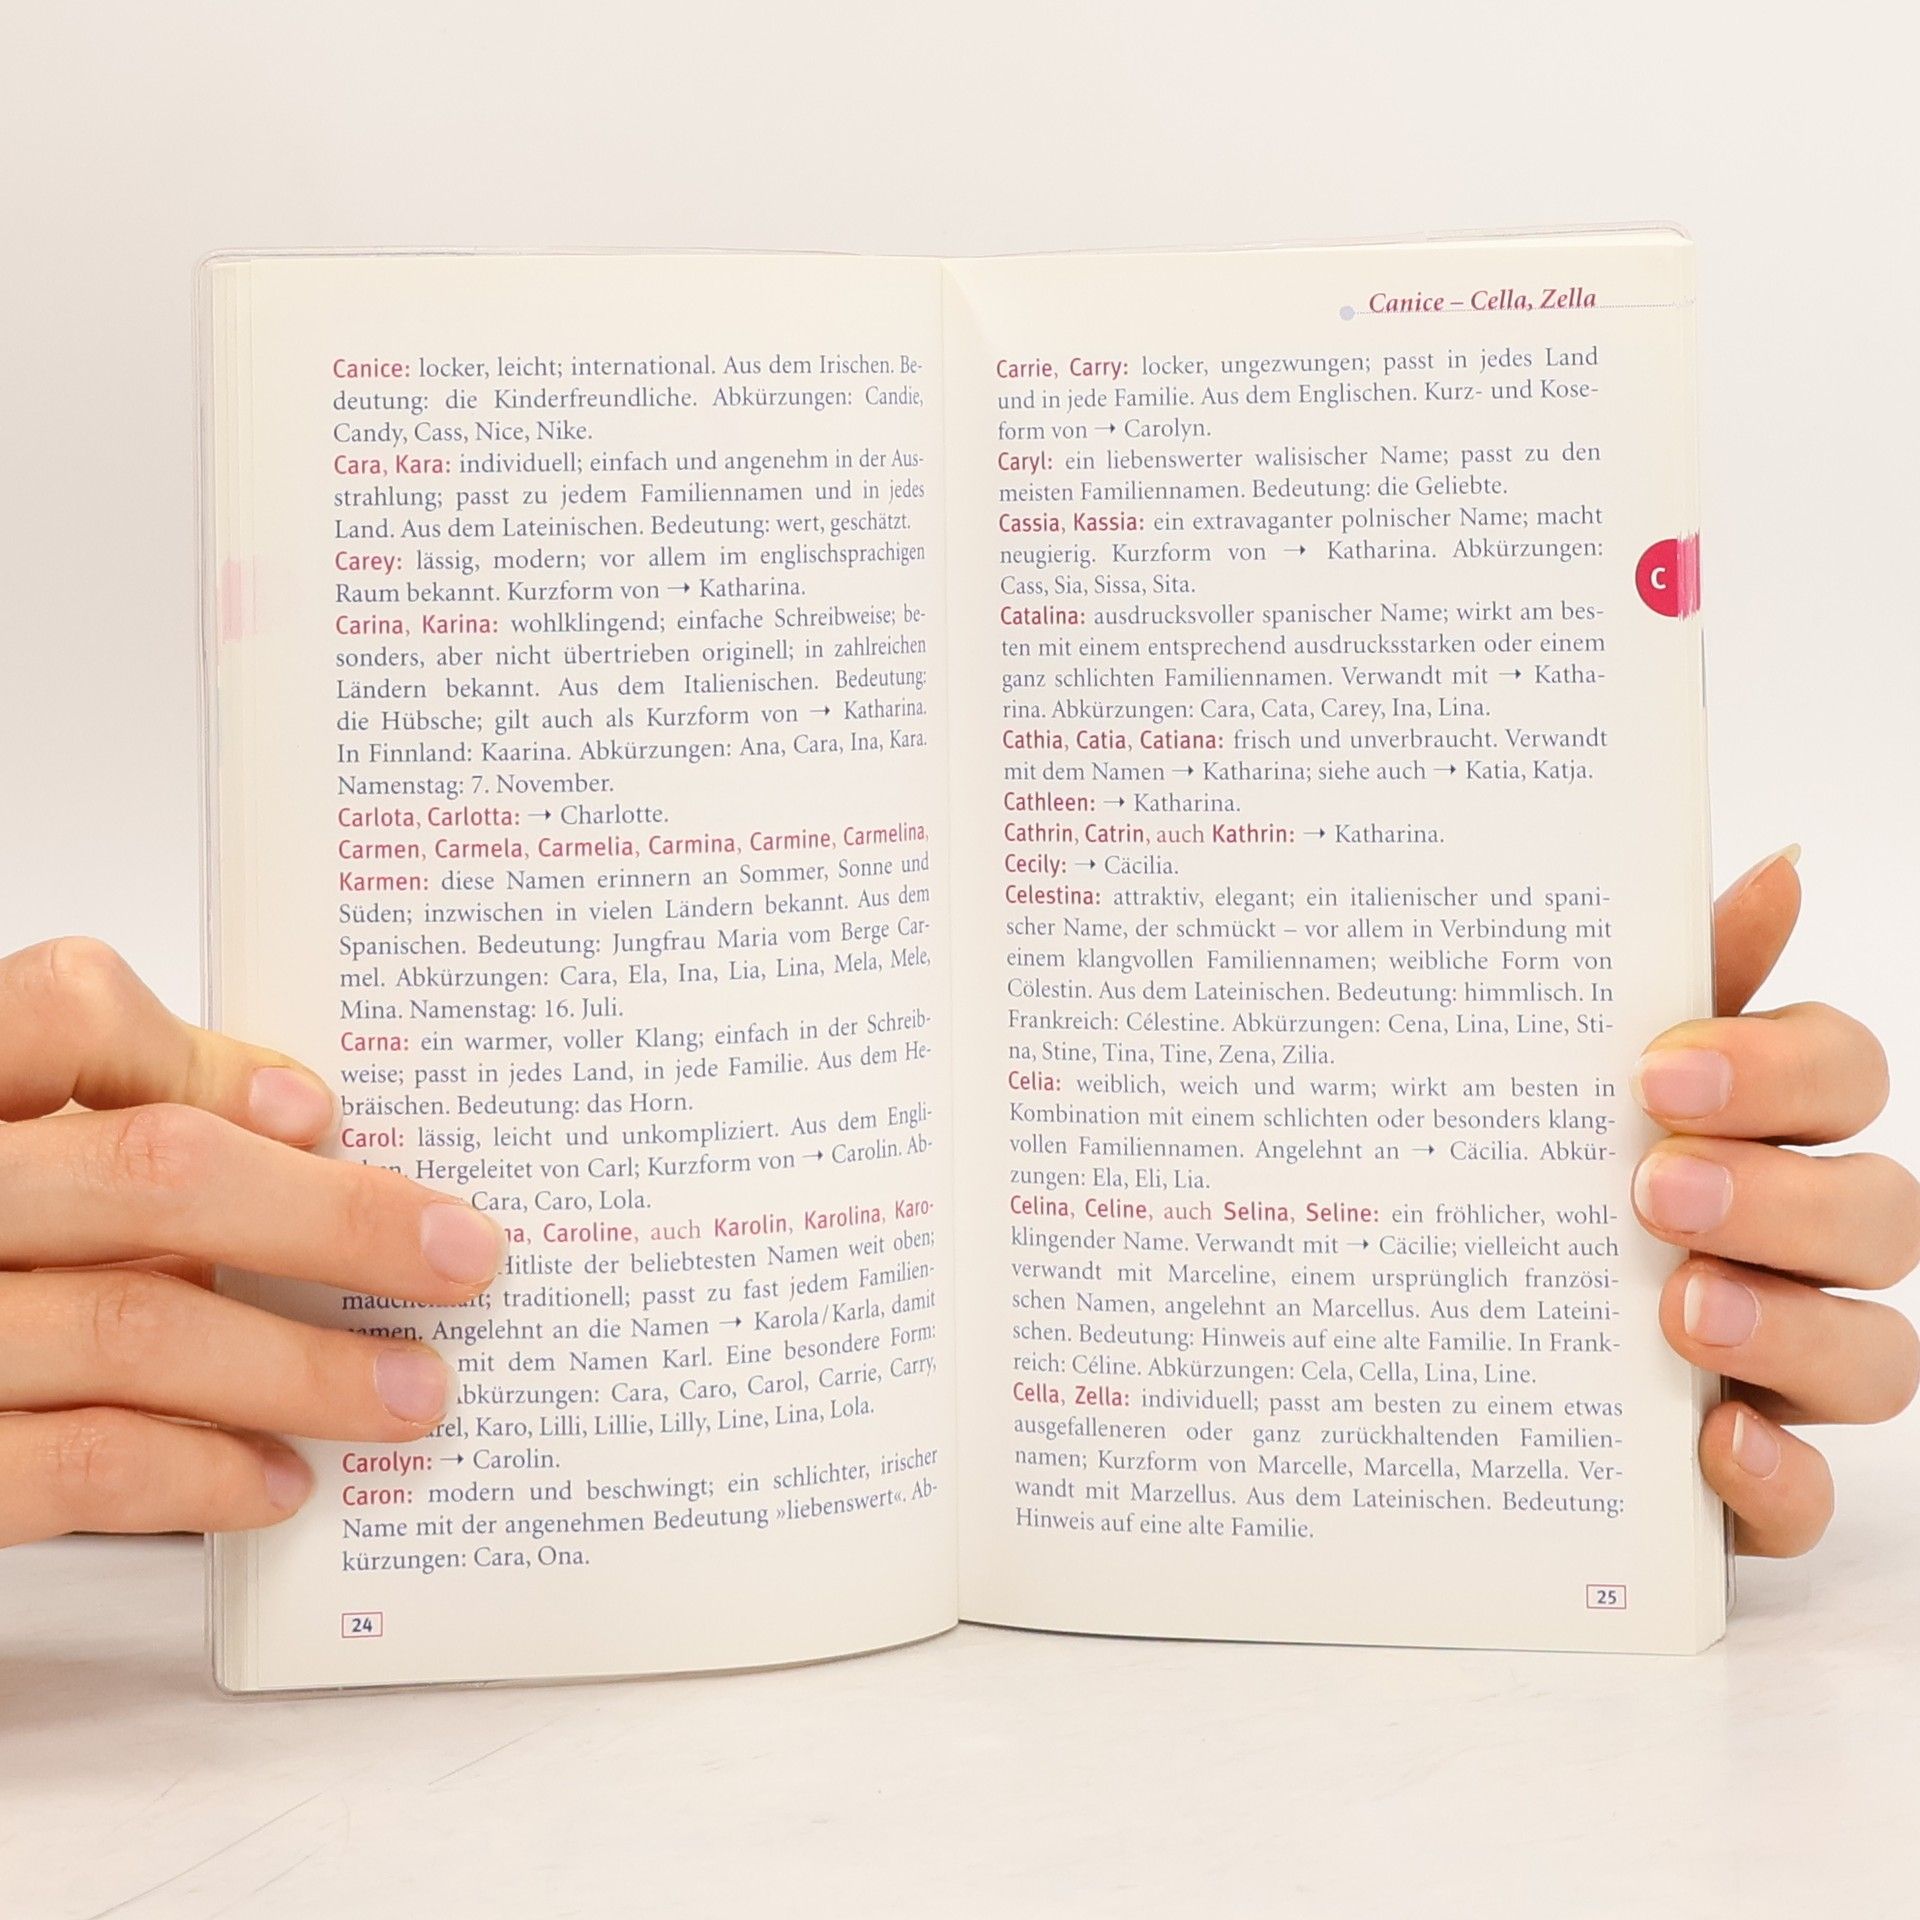 Canice: locker, leicht; international. Aus dem Irischen. Be-
deutung: die Kinderfreundliche. Abkürzungen: Candie,
Candy, Cass, Nice, Nike.
Cara, Kara: individuell; einfach und angenehm in der Aus-
strahlung; passt zu jedem Familiennamen und in jedes
Land. Aus dem Lateinischen. Bedeutung: wert, geschätzt.
Carey: lässig, modern; vor allem im englischsprachigen
Raum bekannt. Kurzform von → Katharina.
Carina, Karina: wohlklingend; einfache Schreibweise; be-
sonders, aber nicht übertrieben originell; in zahlreichen
Ländern bekannt. Aus dem Italienischen. Bedeutung:
die Hübsche; gilt auch als Kurzform von → Katharina.
In Finnland: Kaarina. Abkürzungen: Ana, Cara, Ina, Kara.
Namenstag: 7. November.
Carlota, Carlotta: → Charlotte.
Carmen, Carmela, Carmelia, Carmina, Carmine, Carmelina,
Karmen: diese Namen erinnern an Sommer, Sonne und
Süden; inzwischen in vielen Ländern bekannt. Aus dem
Spanischen. Bedeutung: Jungfrau Maria vom Berge Car-
mel. Abkürzungen: Cara, Ela, Ina, Lia, Lina, Mela, Mele,
Mina. Namenstag: 16. Juli.
Carna: ein warmer, voller Klang; einfach in der Schreib-
weise; passt in jedes Land, in jede Familie. Aus dem He-
bräischen. Bedeutung: das Horn.
Carol: lässig, leicht und unkompliziert. Aus dem Engli-
Hergeleitet von Carl; Kurzform von → Carolin. Ab-
Cara, Caro, Lola.
Caroline, auch Karolin, Karolina, Karo-
Hitliste der beliebtesten Namen weit oben;
traditionell; passt zu fast jedem Familien-
Angelehnt an die Namen → Karola/Karla, damit
mit dem Namen Karl. Eine besondere Form:
Abkürzungen: Cara, Caro, Carol, Carrie, Carry,
Karo, Lilli, Lillie, Lilly, Line, Lina, Lola.
Carolyn: → Carolin.
Caron: modern und beschwingt; ein schlichter, irischer
Name mit der angenehmen Bedeutung »liebenswert«. Ab-
kürzungen: Cara, Ona.
24
Canice – Cella, Zella
Carrie, Carry: locker, ungezwungen; passt in jedes Land
und in jede Familie. Aus dem Englischen. Kurz- und Kose-
form von → Carolyn.
Caryl: ein liebenswerter walisischer Name; passt zu den
meisten Familiennamen. Bedeutung: die Geliebte.
Cassia, Kassia: ein extravaganter polnischer Name; macht
neugierig. Kurzform von → Katharina. Abkürzungen:
Cass, Sia, Sissa, Sita.
C
Catalina: ausdrucksvoller spanischer Name; wirkt am bes-
ten mit einem entsprechend ausdrucksstarken oder einem
ganz schlichten Familiennamen. Verwandt mit → Katha-
rina. Abkürzungen: Cara, Cata, Carey, Ina, Lina.
Cathia, Catia, Catiana: frisch und unverbraucht. Verwandt
mit dem Namen → Katharina; siehe auch → Katia, Katja.
Cathleen: → Katharina.
Cathrin, Catrin, auch Kathrin: → Katharina.
Cecily: → Cäcilia.
Celestina: attraktiv, elegant; ein italienischer und spani-
scher Name, der schmückt – vor allem in Verbindung mit
einem klangvollen Familiennamen; weibliche Form von
Cölestin. Aus dem Lateinischen. Bedeutung: himmlisch. In
Frankreich: Célestine. Abkürzungen: Cena, Lina, Line, Sti-
na, Stine, Tina, Tine, Zena, Zilia.
Celia: weiblich, weich und warm; wirkt am besten in
Kombination mit einem schlichten oder besonders klang-
vollen Familiennamen. Angelehnt an → Cäcilia. Abkür-
zungen: Ela, Eli, Lia.
Celina, Celine, auch Selina, Seline: ein fröhlicher, wohl-
klingender Name. Verwandt mit → Cäcilie; vielleicht auch
verwandt mit Marceline, einem ursprünglich französi-
schen Namen, angelehnt an Marcellus. Aus dem Lateini-
schen. Bedeutung: Hinweis auf eine alte Familie. In Frank-
reich: Céline. Abkürzungen: Cela, Cella, Lina, Line.
Cella, Zella: individuell; passt am besten zu einem etwas
ausgefalleneren oder ganz zurückhaltenden Familien-
namen; Kurzform von Marcelle, Marcella, Marzella. Ver-
wandt mit Marzellus. Aus dem Lateinischen. Bedeutung:
Hinweis auf eine alte Familie.
25